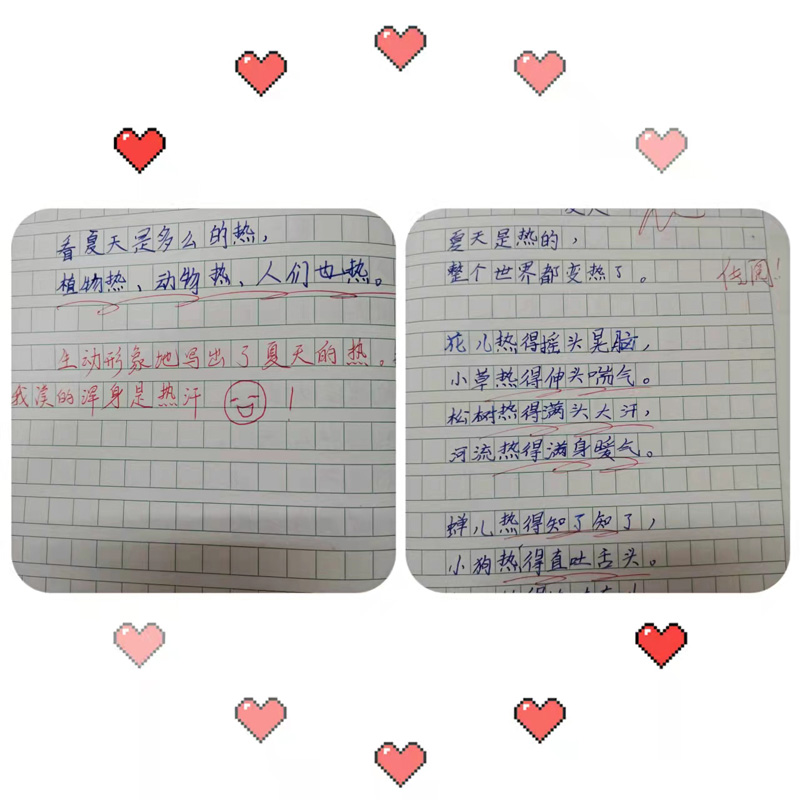 看夏天是多么的热，
植物热、动物热、人们也热。
生动形象地写出了夏天的热。
我读的浑身是热汗
夏天是热的，
整个世界都变热了。
传阅！
花儿热得摇头晃脑，
小草热得伸头喘气。
松树热得满头大汗，
河流热得满身暖气。
蝉儿热得知了知了，
小狗热得直吐舌头。